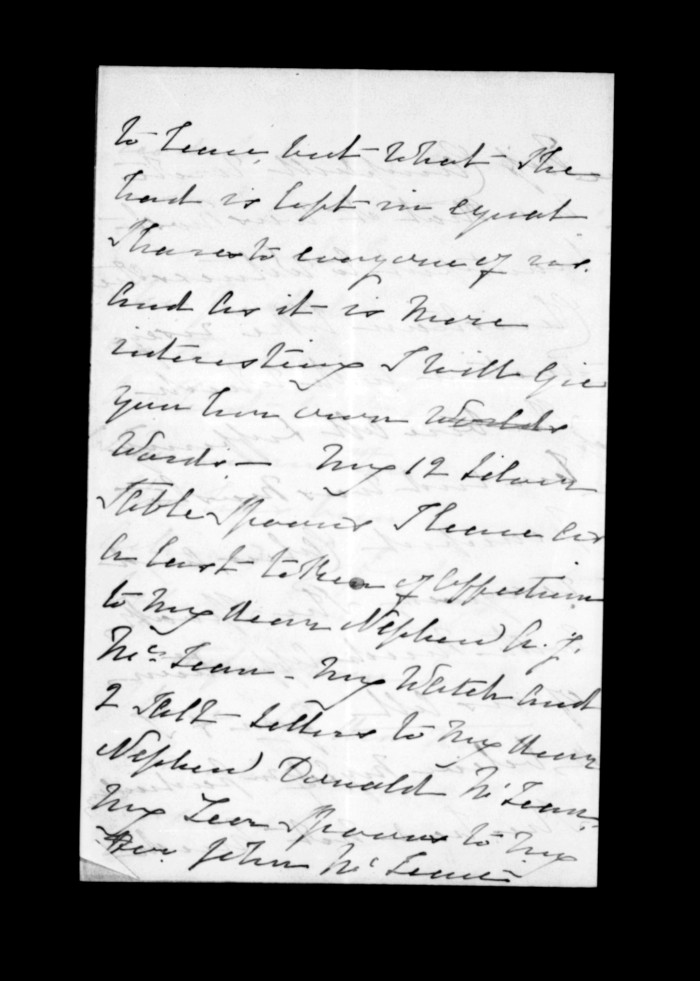 to leave, but what she
had is left in equal
shares to everyone of us.
And as it is more
interesting I will give
you her own worlds
Words — My 12 Silver
table spoons I leave as
a last token of affection
to my dear Nephew A. J.
McLean - My Watch and
2 Salt Sellers to my dear
Nephew Donald McLean.
My Tea spoons to my
John McLean